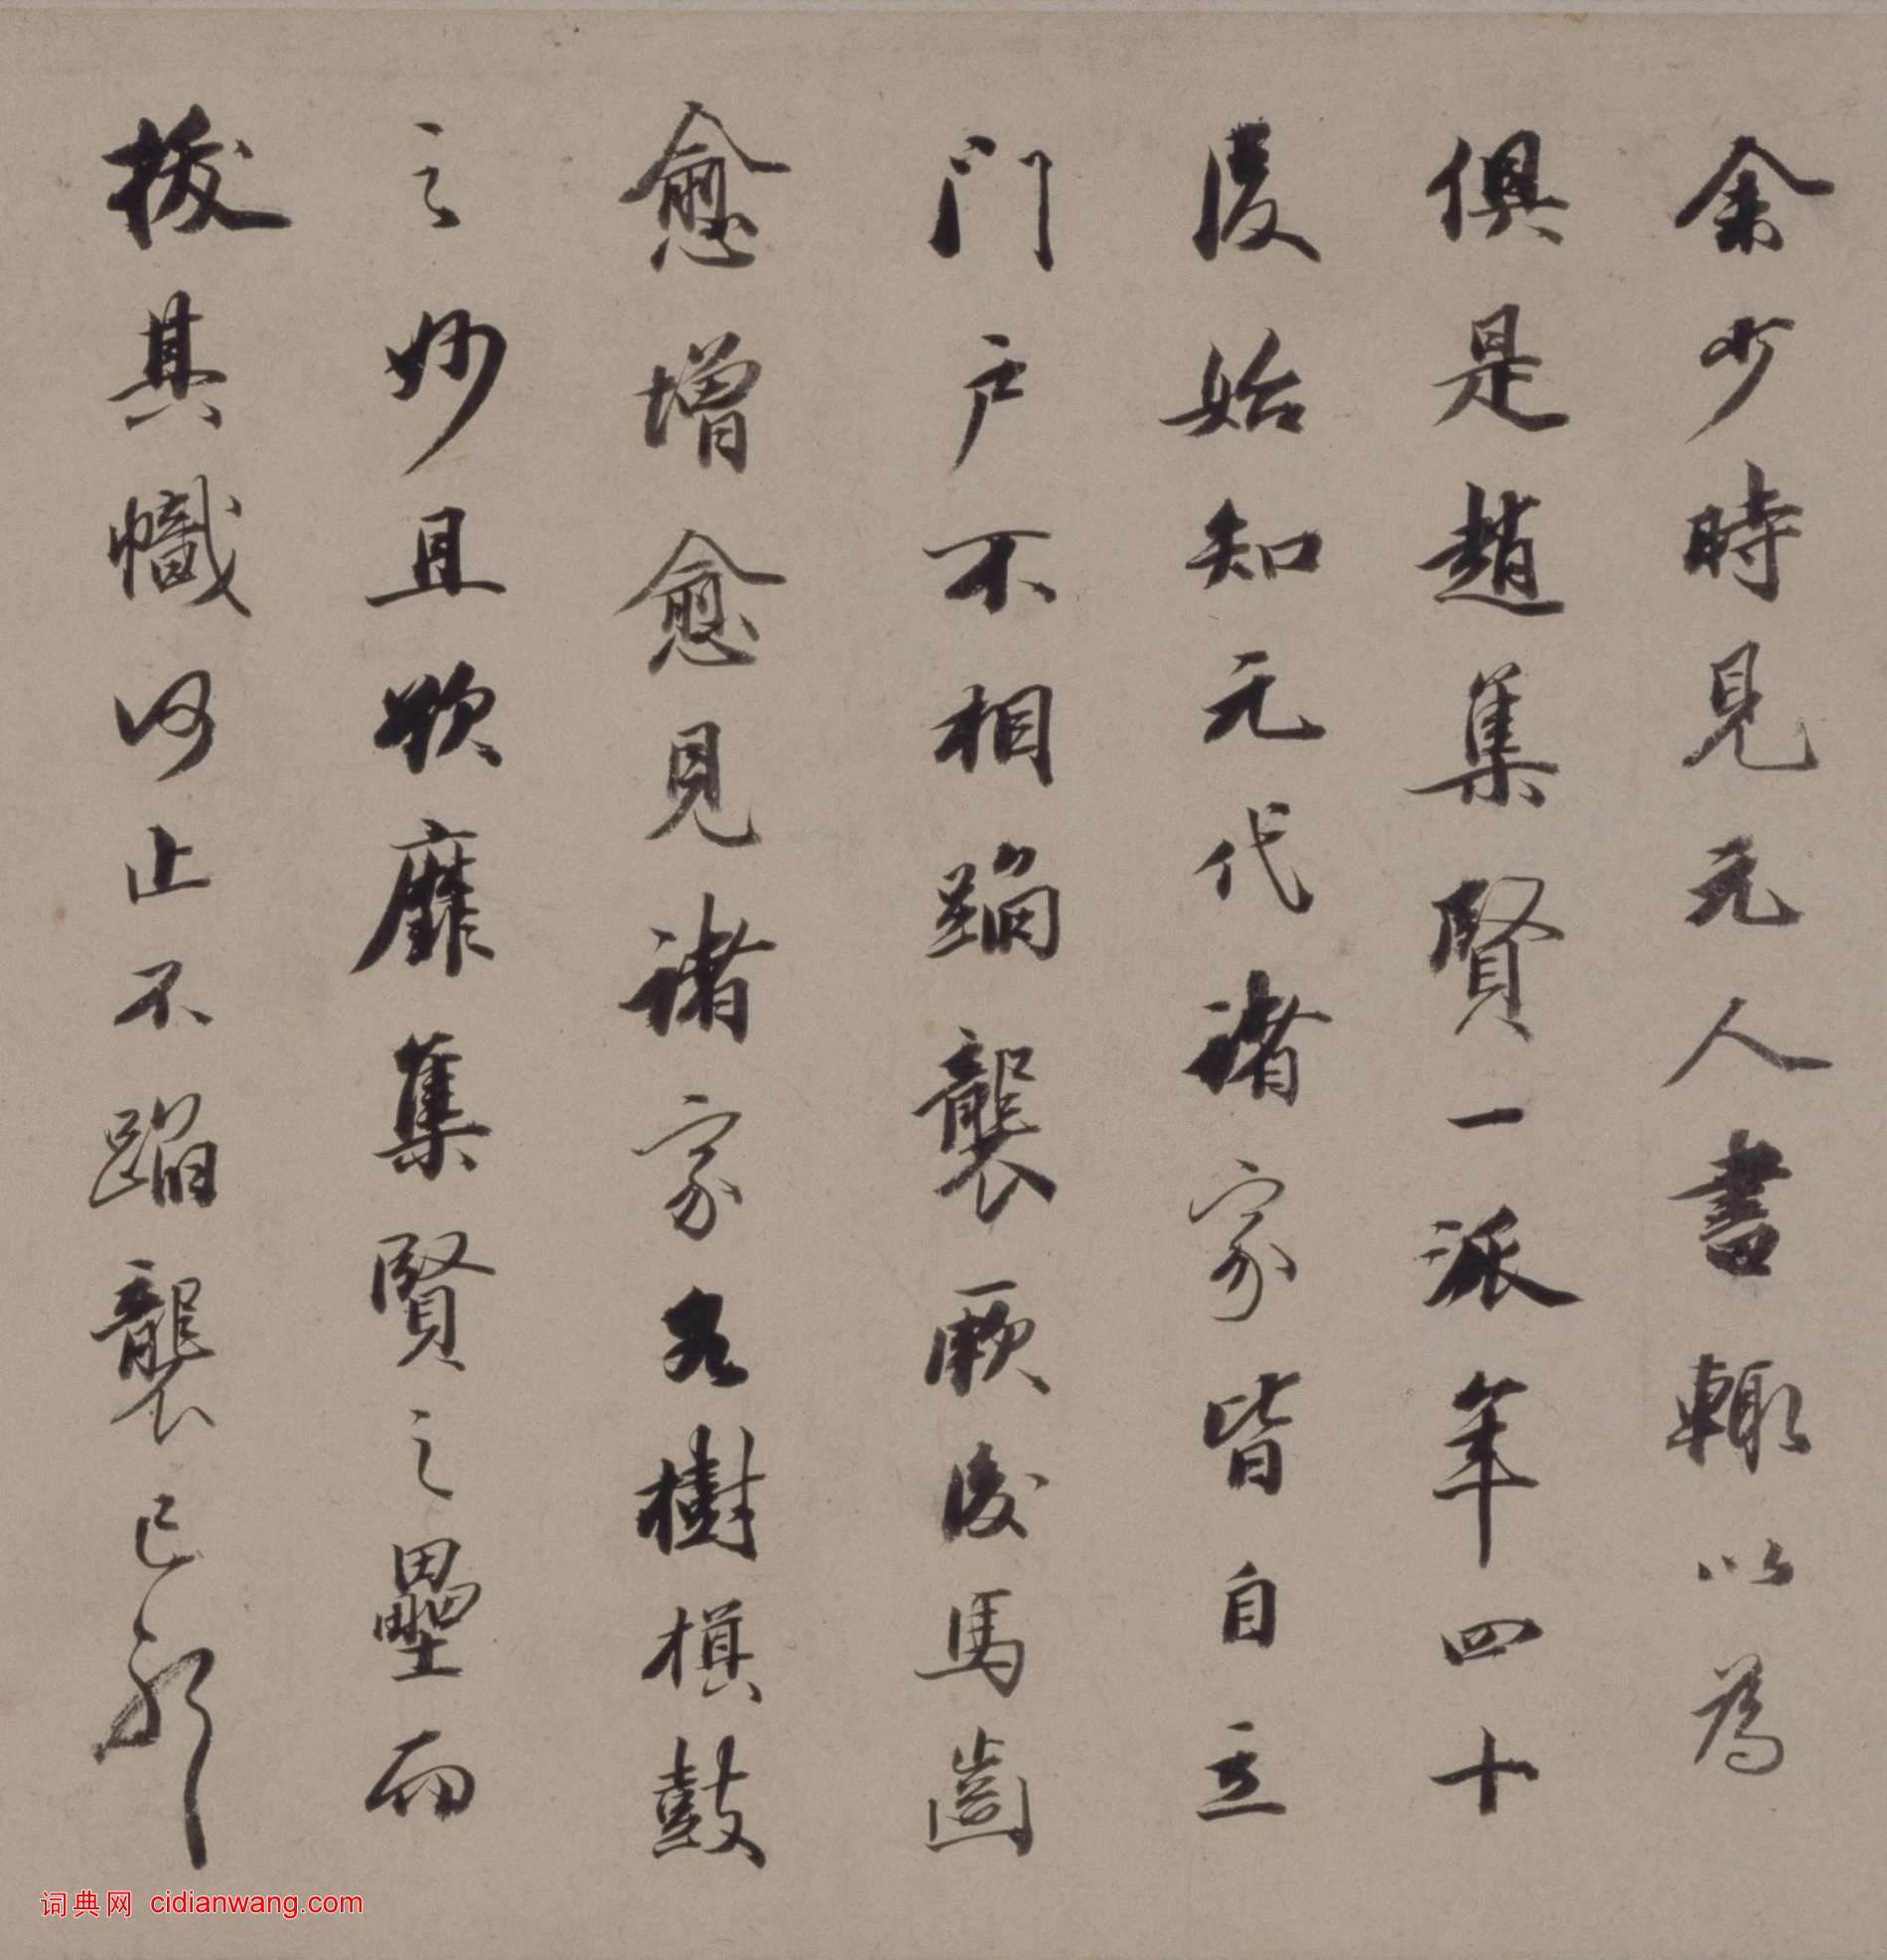 余少時見元人書輙以為
俱是趙集賢一派年四十
後始知元代諸家皆自立
門戶不相蹈襲厥後馬齒
愈增愈見諸家各樹旗鼓
之妙且欲靡集賢之壘而
拔其幟何止不蹈襲已耶
词典网 cidianwang.com